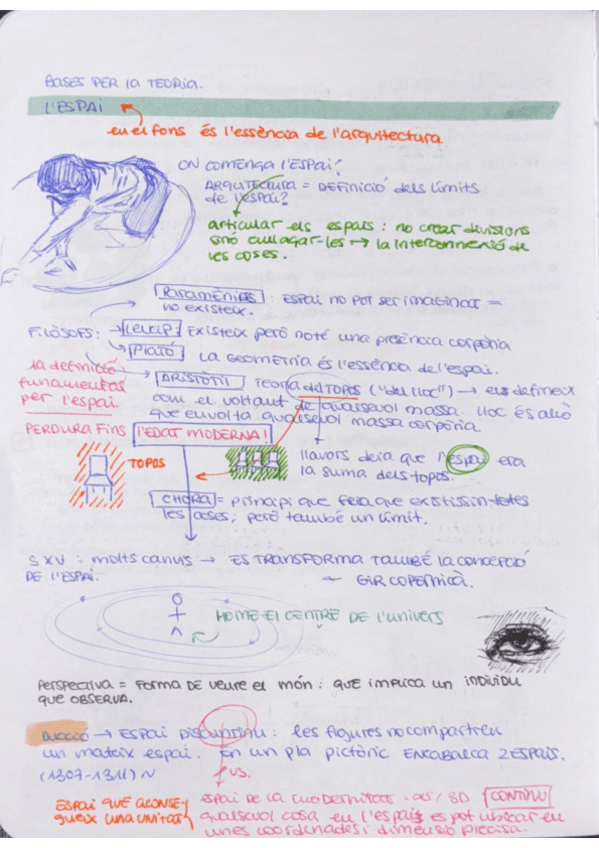 BASES PER la TEORIA.
L'ESPAI
en el fons és l'essència de l'arquitectura.
ON COMENÇA L'ESPAI?
ARQUITECTURA = DEFINICIÓ dels límits
de l'espai?
articular els espais: no crear divisions
sinó enllaçar-les → la interconnexió de
les coses.
Paramènides: ESPAI no pot ser imaginat =
no existeix.
FILÒSOFS: Leucip: Existeix però no té una presència corpòria
Plató La Geometria és l'essència de l'espai.
la definició
fonamental
per l'espai.
PERDURA FINS l'EDAT MODERNA!
ARISTÒTIL Teoria del TOPOS ("del lloc") → els defineix
com el voltant de qualsevol massa. lloc és allò
que envolta qualsevol massa corpòria.
TOPOS
llavors deia que l'espai era
la suma dels topos.
CHORA = principi que feia que existissin totes
les coses; però també un límit.
S XV : molts canvis → ES TRANSFORMA TAMBÉ la CONCEPCIÓ
DE l'ESPAI. ~ GIR COPERNICÀ.
HOME El CENTRE DE l'univers
Perspectiva = Forma DE veure el món : que implica un individu
que observa.
→ ESPAI DISCONTINU : les figures no comparteixen
un mateix espai. En un pla pictòric ENCABALCA 2 ESPAIS.
VS.
ESPAI QUE ACONSE-
gueix una unitat
ESPAI DE la MODERNITAT = / 3D CONTINU
qualsevol cosa en l'espai es pot ubicar en
unes coordenades i dimensió precisa.